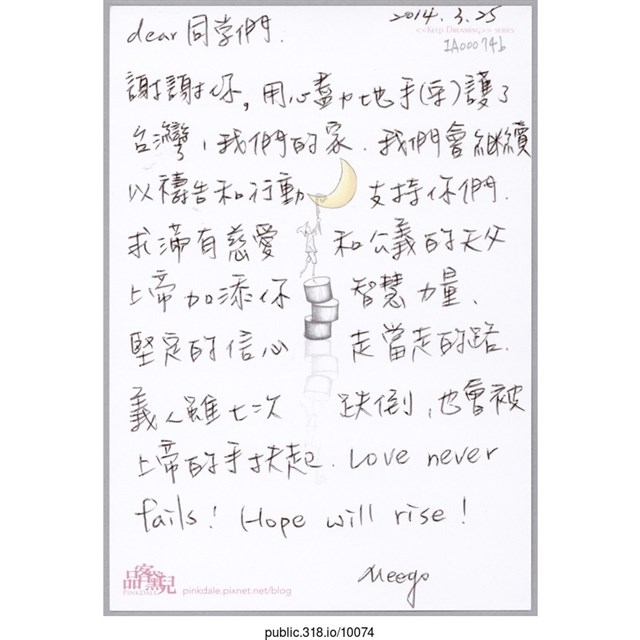 2014.3.25
<<KEEP DREAMING>> SERIES
dear 同学們.
1A00074b
謝謝你,用心盡力地手(守)護了
台灣,我們的家.我們會繼續
以禱告和行動 支持你們.
求滿有慈愛 和公義的天父
上帝加添你 智慧力量、
堅定的信心 走當走的路.
義人雖七次 跌倒,也會被
上帝的手扶起. Love never
fails! Hope will rise!
Meego
品客黛兒
PINKDALE
pinkdale.pixnet.net/blog
public.318.io/10074